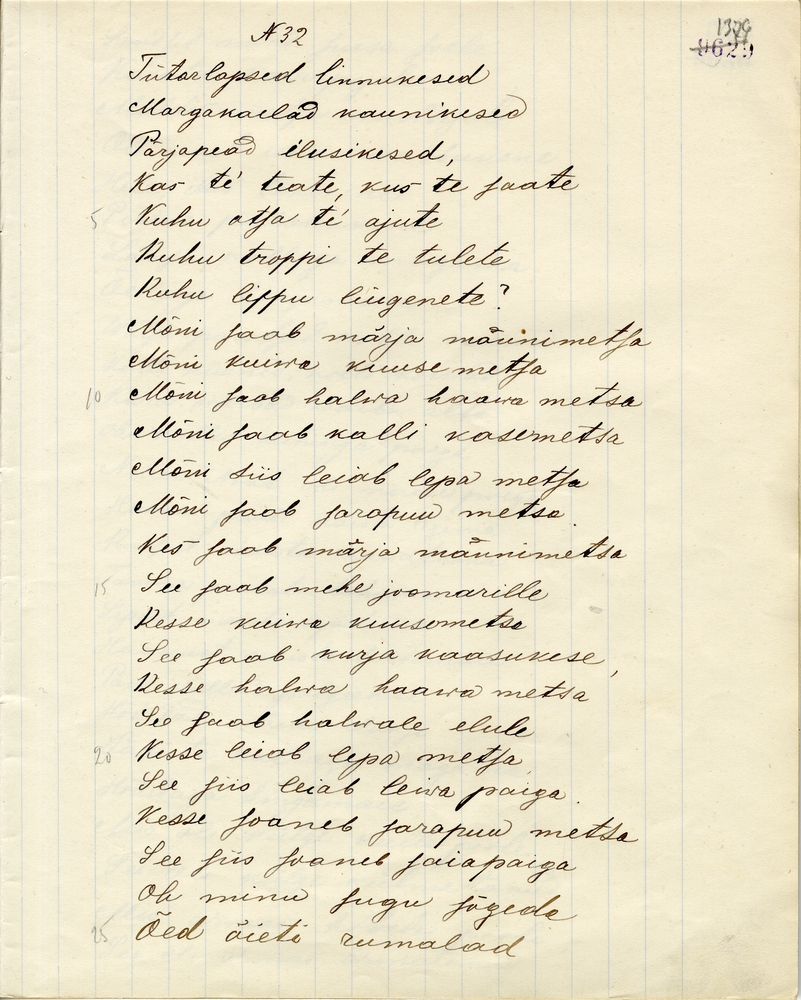 N 32
Tütarlapsed linnukesed
Margakaelad kaunikesed
Pärjapead ilusikesed,
Kas te' teate, kus te saate
5 Kuhu otsa te' ajute
Kuhu troppi te tulete
Kuhu lippu liugenete?
Mõni saab märja männimetsa
Mõni kuiwa kuuse metsa
10 Mõni saab halwa haawa metsa
Mõni saab kalli kasemetsa
Mõni siis leiab lepa metsa
Mõni saab sarapuu metsa
Kes saab märja männimetsa
15 See saab mehe joomarille
Kesse kuiwa kuusemetsa
See saab kurja kaasukese,
Kesse halwa haawa metsa
See saab halwale elule
20 Kesse leiab lepa metsa
See siis leiab leiwa paiga
Kesse soaneb sarapuu metsa
See siis soaneb saiapaiga
Oh minu sugu sõgeda
25 Õed õieti rumalad